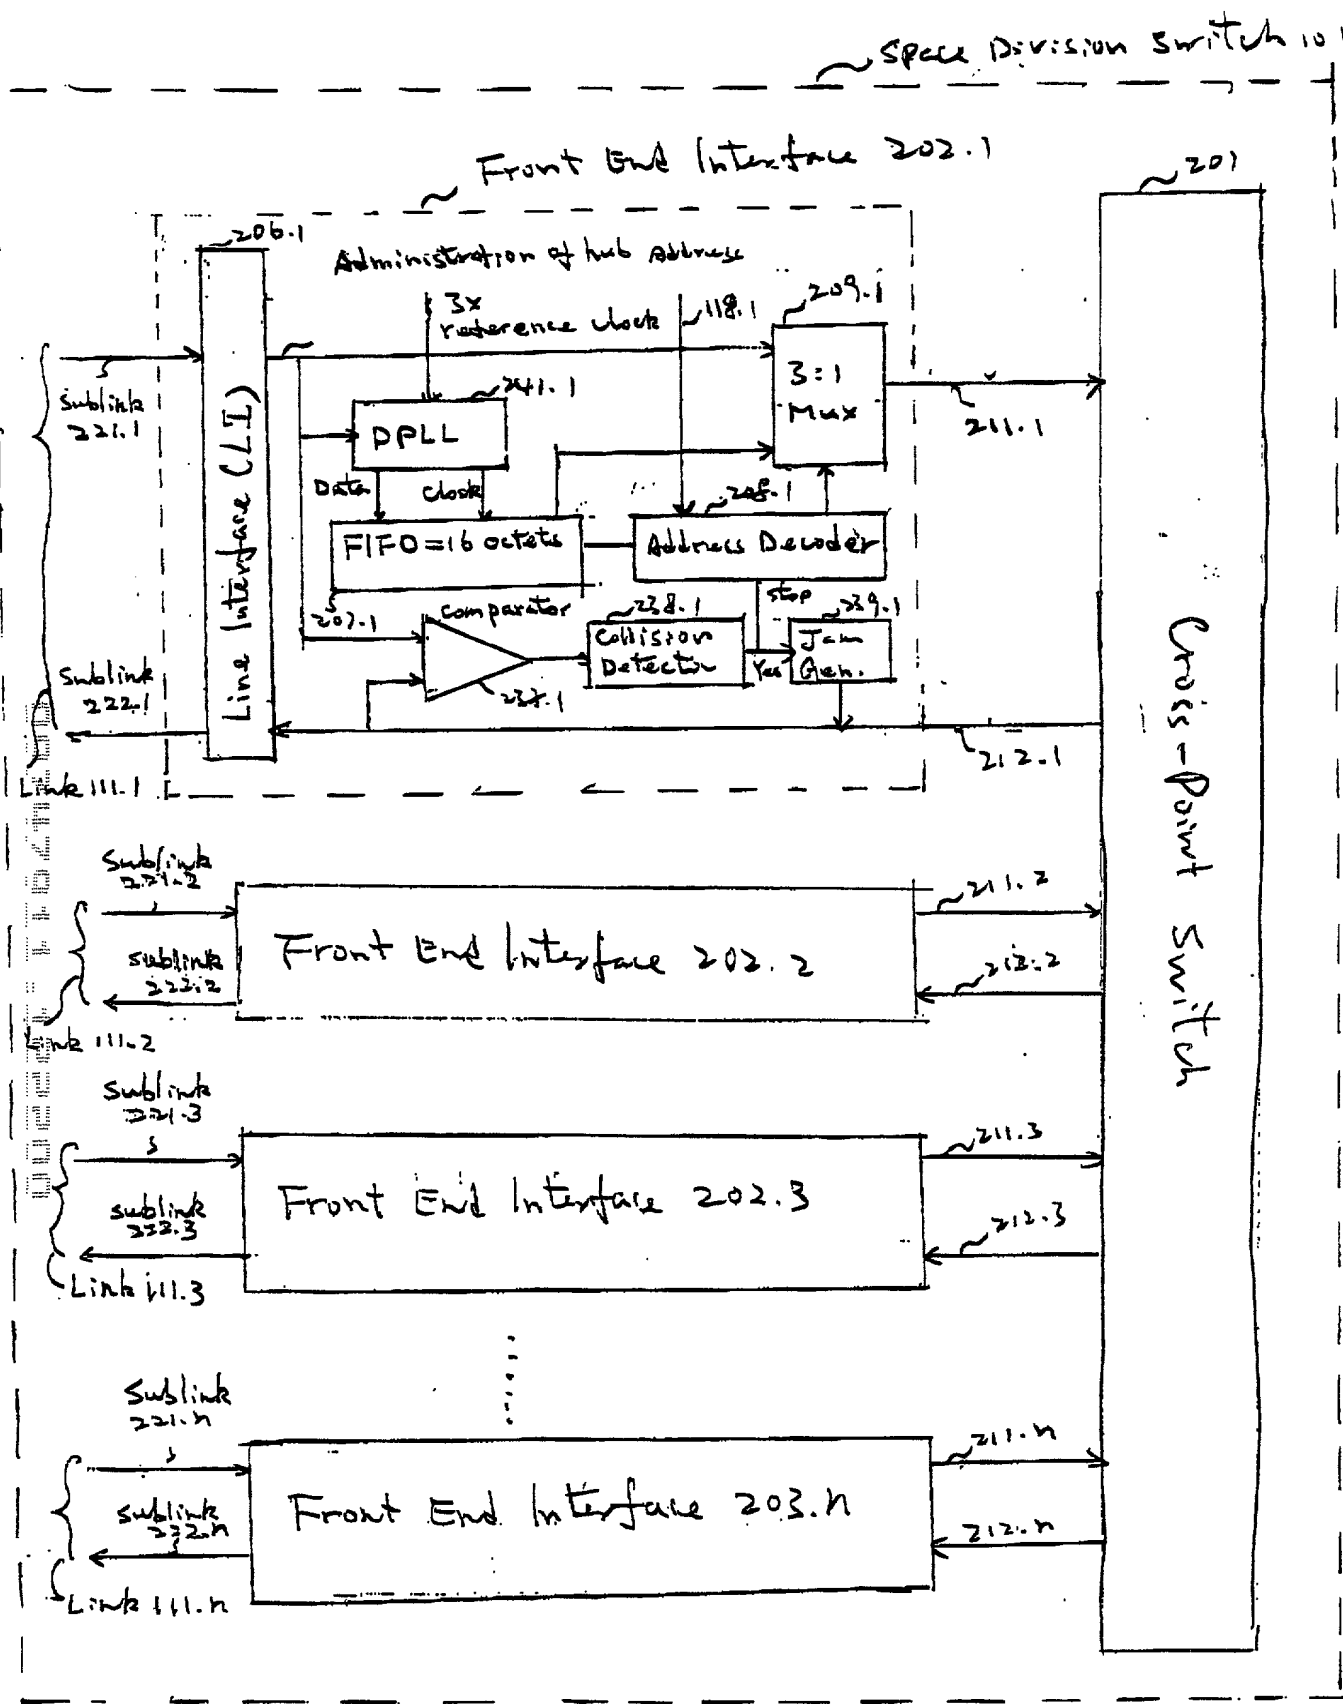 Space Division Switch 101
Front End Interface 202.1
201
206.1
Administration of hub Address
3x
reference clock
118.1
209.1
3:1
Mux
Sublink
221.1
Line Interface (LI)
241.1
DPLL
211.1
Data
Clock
208.1
FIFO=16 octets
Address Decoder
207.1
Comparator
238.1
Stop
239.1
Collision
Detector
Yes
Jam
Gen.
237.1
Sublink
222.1
212.1
Link 111.1
Cross-Point Switch
Sublink
221.2
211.2
Front End Interface 202.2
Sublink
222.2
212.2
Link 111.2
Sublink
221.3
211.3
Front End Interface 202.3
Sublink
222.3
212.3
Link 111.3
Sublink
221.n
211.n
Front End Interface 203.n
Sublink
222.n
212.n
Link 111.n